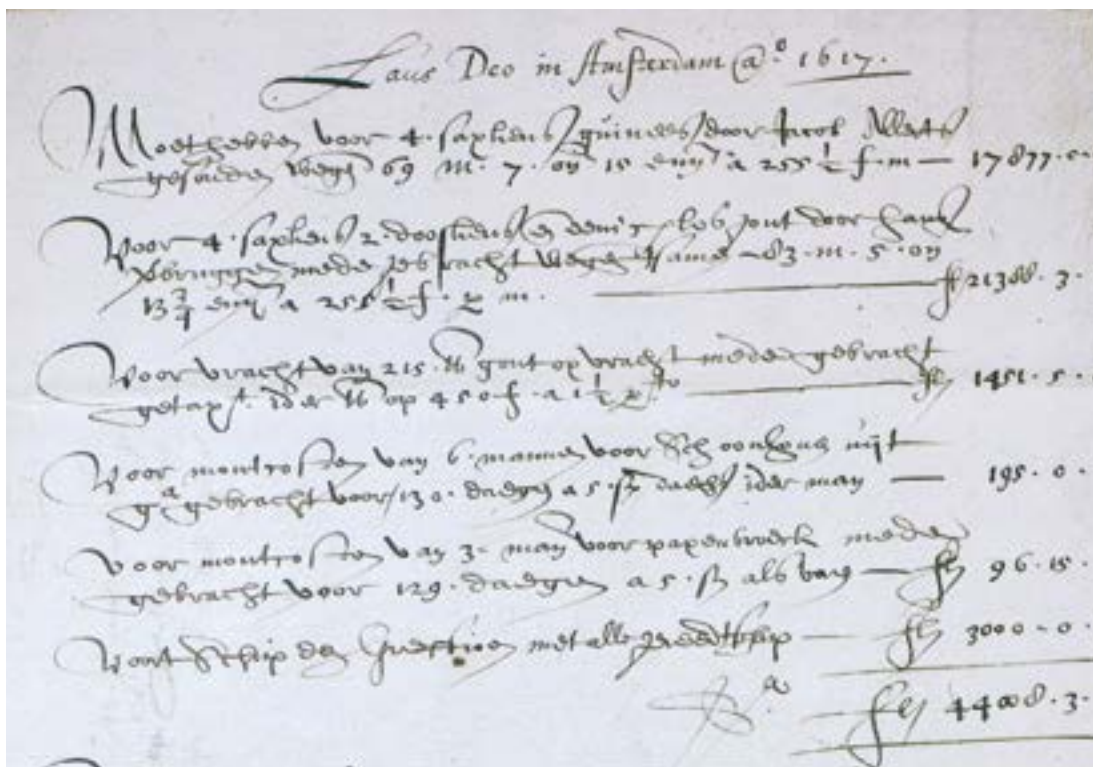 Laus Deo in Amsterdam Aº 1617.
Moet hebben voor 4. saxkens guinees door Jacob Allerts
gesonden weg 69 m. 7. on 15 eng a 255 ½ f. m — 17877.
Voor 4. saxkens 2. en door hans
mede gebracht wegen tsame 83. m. 5. on
13 ¾ eng a 255 ½ f. m. fl 21388. 3.
Voor vracht van 215. lb gout op vracht mede gebracht
getaxt. ider lb op 450 f. a 1 ½ — fl 1451. 5.
Voor montcosten van 6. mannen voor uijt
ga gebracht voor 130. daegen a 5. st daechs ider man — 195. 0.
Voor montcosten van 3. man voor papenbroeck mede
gebracht voor 129. daegen a 5. st als van — fl 96. 15.
Voort Schip den met alle gereetschip — fl 3000. 0.
Sa — fl 44008. 3.